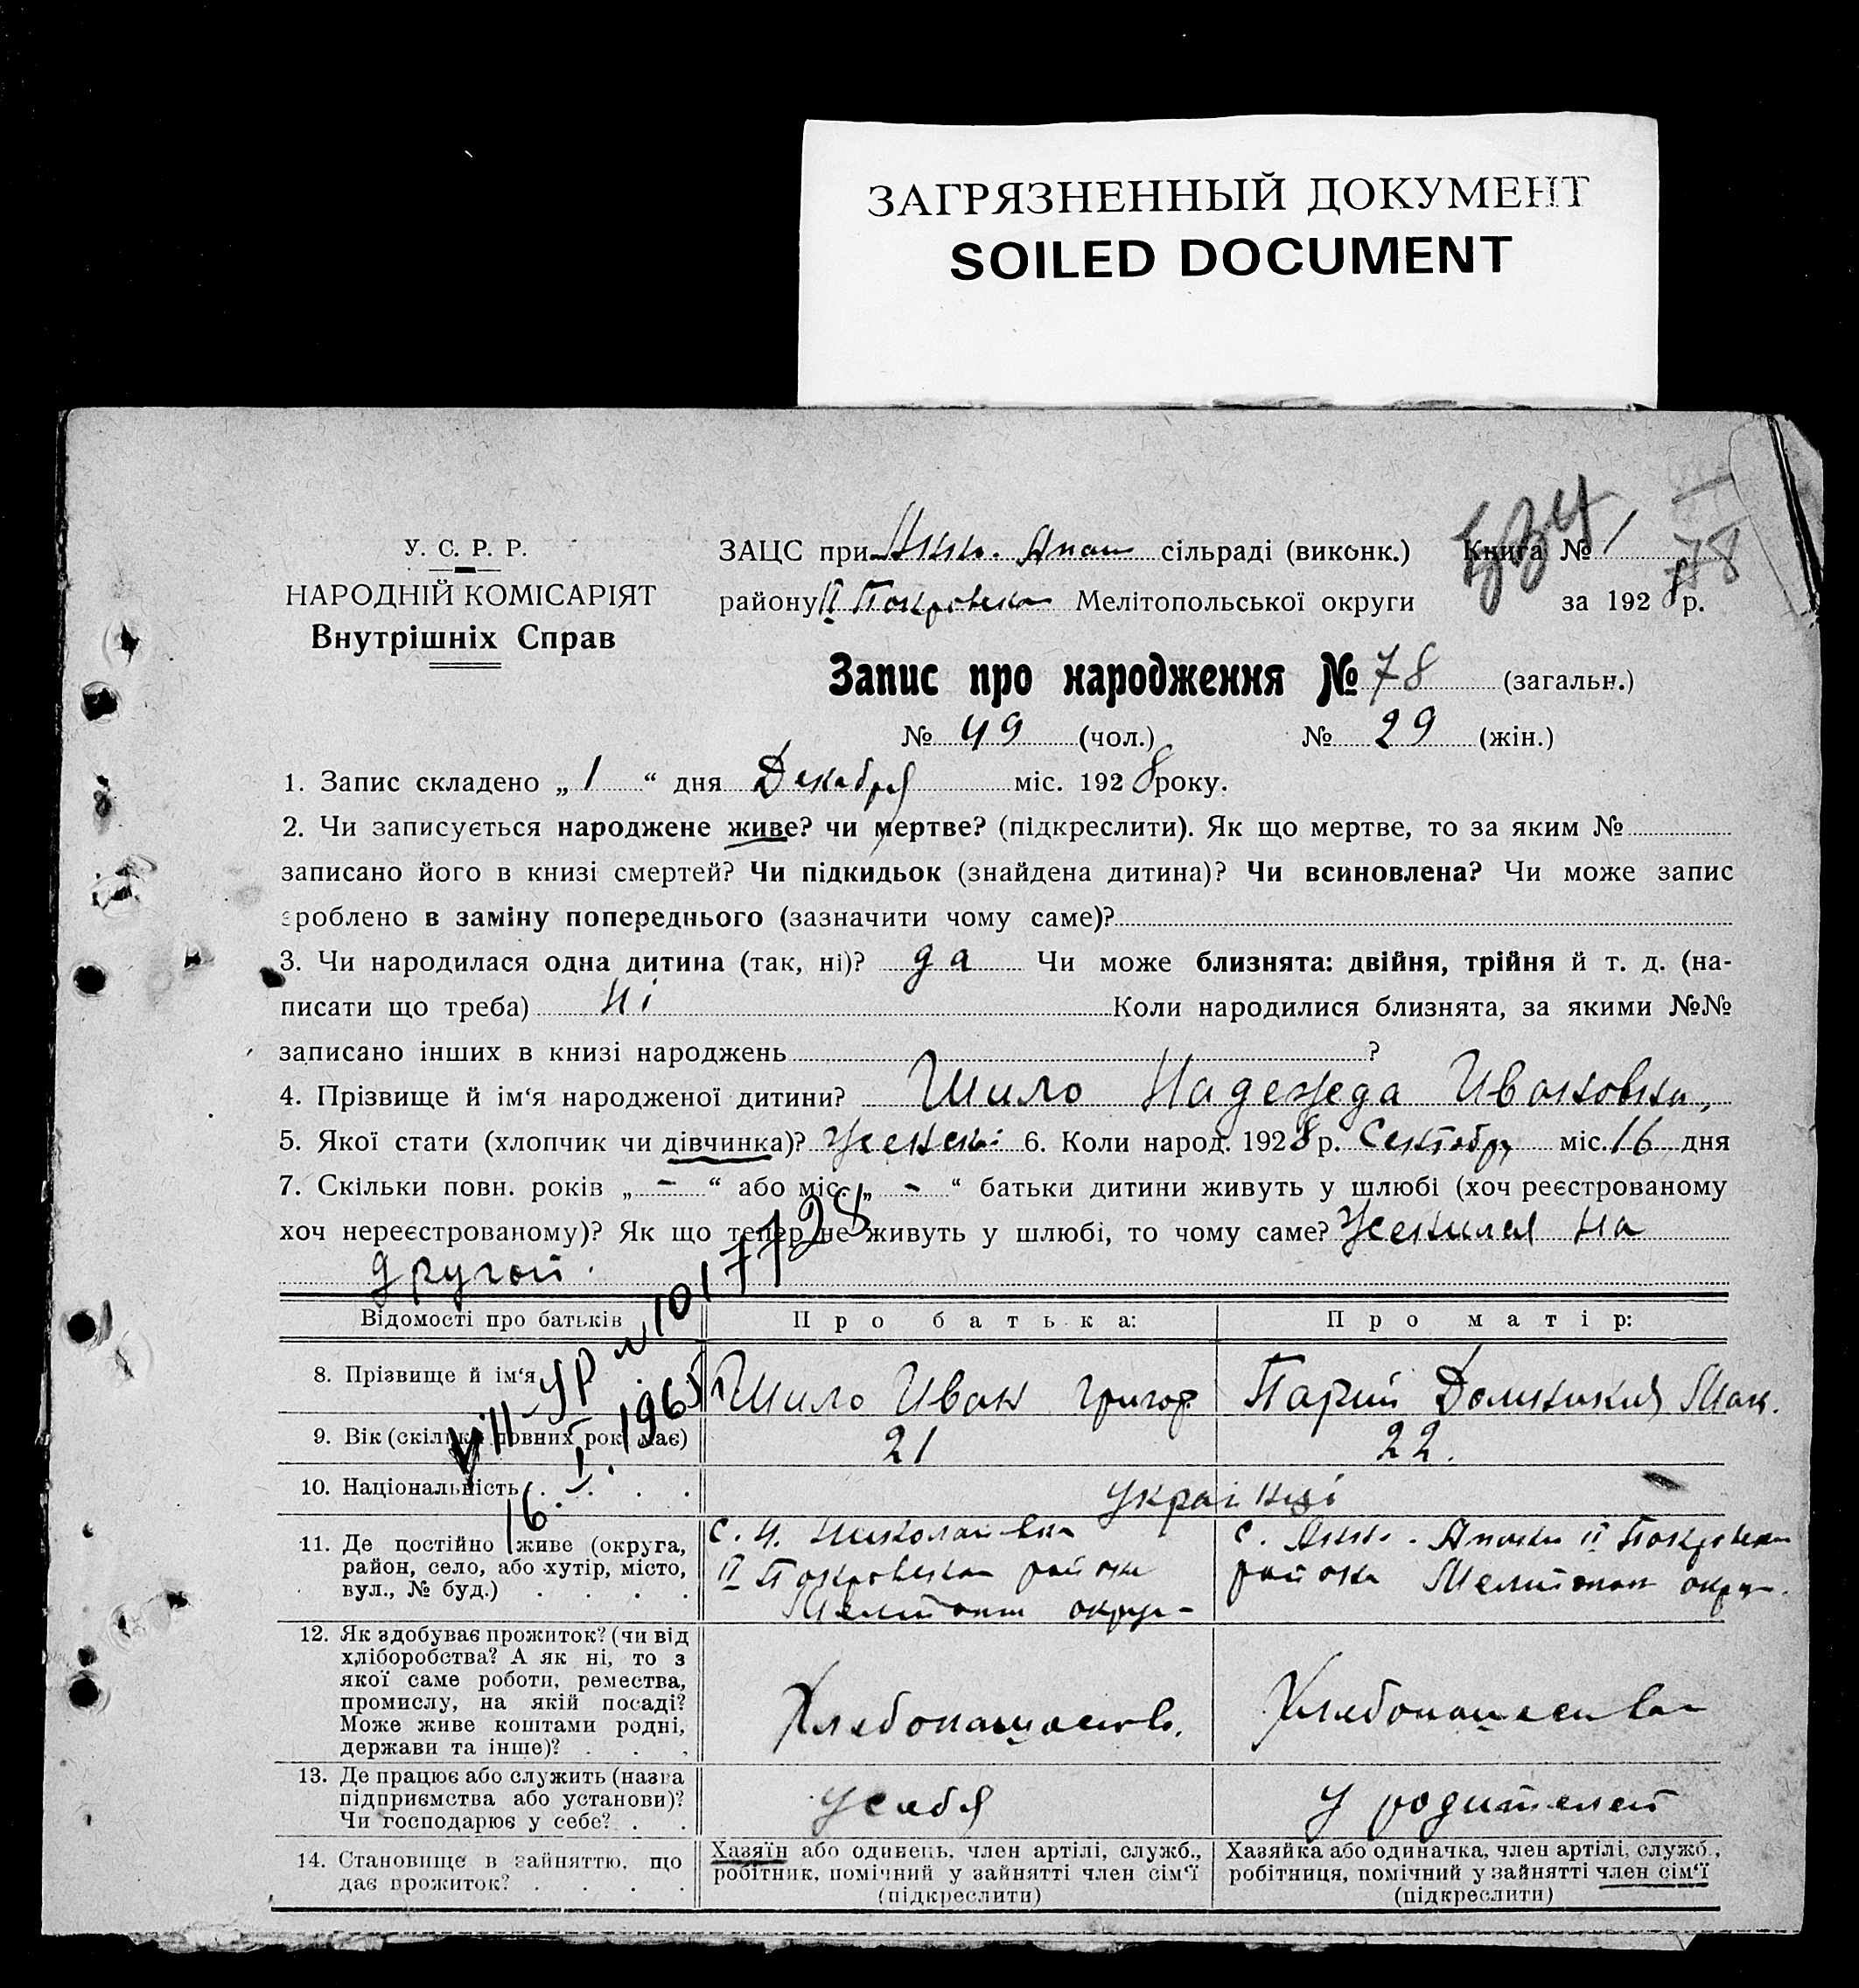 ЗАГРЯЗНЕННЫЙ ДОКУМЕНТ
SOILED DOCUMENT
У. С. Р. Р.
НАРОДНІЙ КОМІСАРІЯТ
Внутрішніх Справ
ЗАЦС при сільраді (виконк.) Книга № 1
району II Покровском Мелітопольської округи за 1928 р.
78
Запис про народження № 78 (загальн.)
№ 49 (чол.) № 29 (жін.)
1. Запис складено „ 1 “ дня Декабря міс. 1928 року.
2. Чи записується народжене живе? чи мертве? (підкреслити). Як що мертве, то за яким №
записано його в книзі смертей? Чи підкидьок (знайдена дитина)? Чи всиновлена? Чи може запис
зроблено в заміну попереднього (зазначити чому саме)?
3. Чи народилася одна дитина (так, ні)? да Чи може близнята: двійня, трійня й т. д. (на-
писати що треба) ні Коли народилися близнята, за якими №№
записано інших в книзі народжень ?
4. Прізвище й ім‘я народженої дитини? Шило Надежда Ивановна,
5. Якої стати (хлопчик чи дівчинка)? 6. Коли народ. 1928 р. Сентября міс. 16 дня
7. Скільки повн. років „ - “ або міс. „ - “ батьки дитини живуть у шлюбі (хоч реєстрованому
хоч нереєстрованому)? Як що тепер не живуть у шлюбі, то чому саме? Женился на
другой.
VIII-УР № 1017728
16. I. 1965
Відомості про батьків Про батька: Про матір:
8. Прізвище й ім‘я Шило Иван Григор Парий Доминикия
9. Вік (скільки повних рок. має) 21 22.
10. Національність . . . . українці
11. Де постійно живе (округа, район, село, або хутір, місто, вул., № буд.) . . . .
с. Н. Николаевка
II Покровском района
Мелитоп округ-
с. II Покровском
района Мелитопол округ.
12. Як здобуває прожиток? (чи від хліборобства? А як ні, то з якої саме роботи, ремества, промислу, на якій посаді? Може живе коштами родні, держави та інше)? . . .
Хлебопашеств. Хлебопашества
13. Де працює або служить (назва підприємства або установи)? Чи господарює у себе? . .
У себя У родителей
14. Становище в зайняттю, що дає прожиток? . . . .
Хазяїн або одинець, член артілі, служб., робітник, помічний у зайнятті член сім‘ї (підкреслити)
Хазяйка або одиначка, член артілі, служб., робітниця, помічний у зайнятті член сім‘ї (підкреслити)